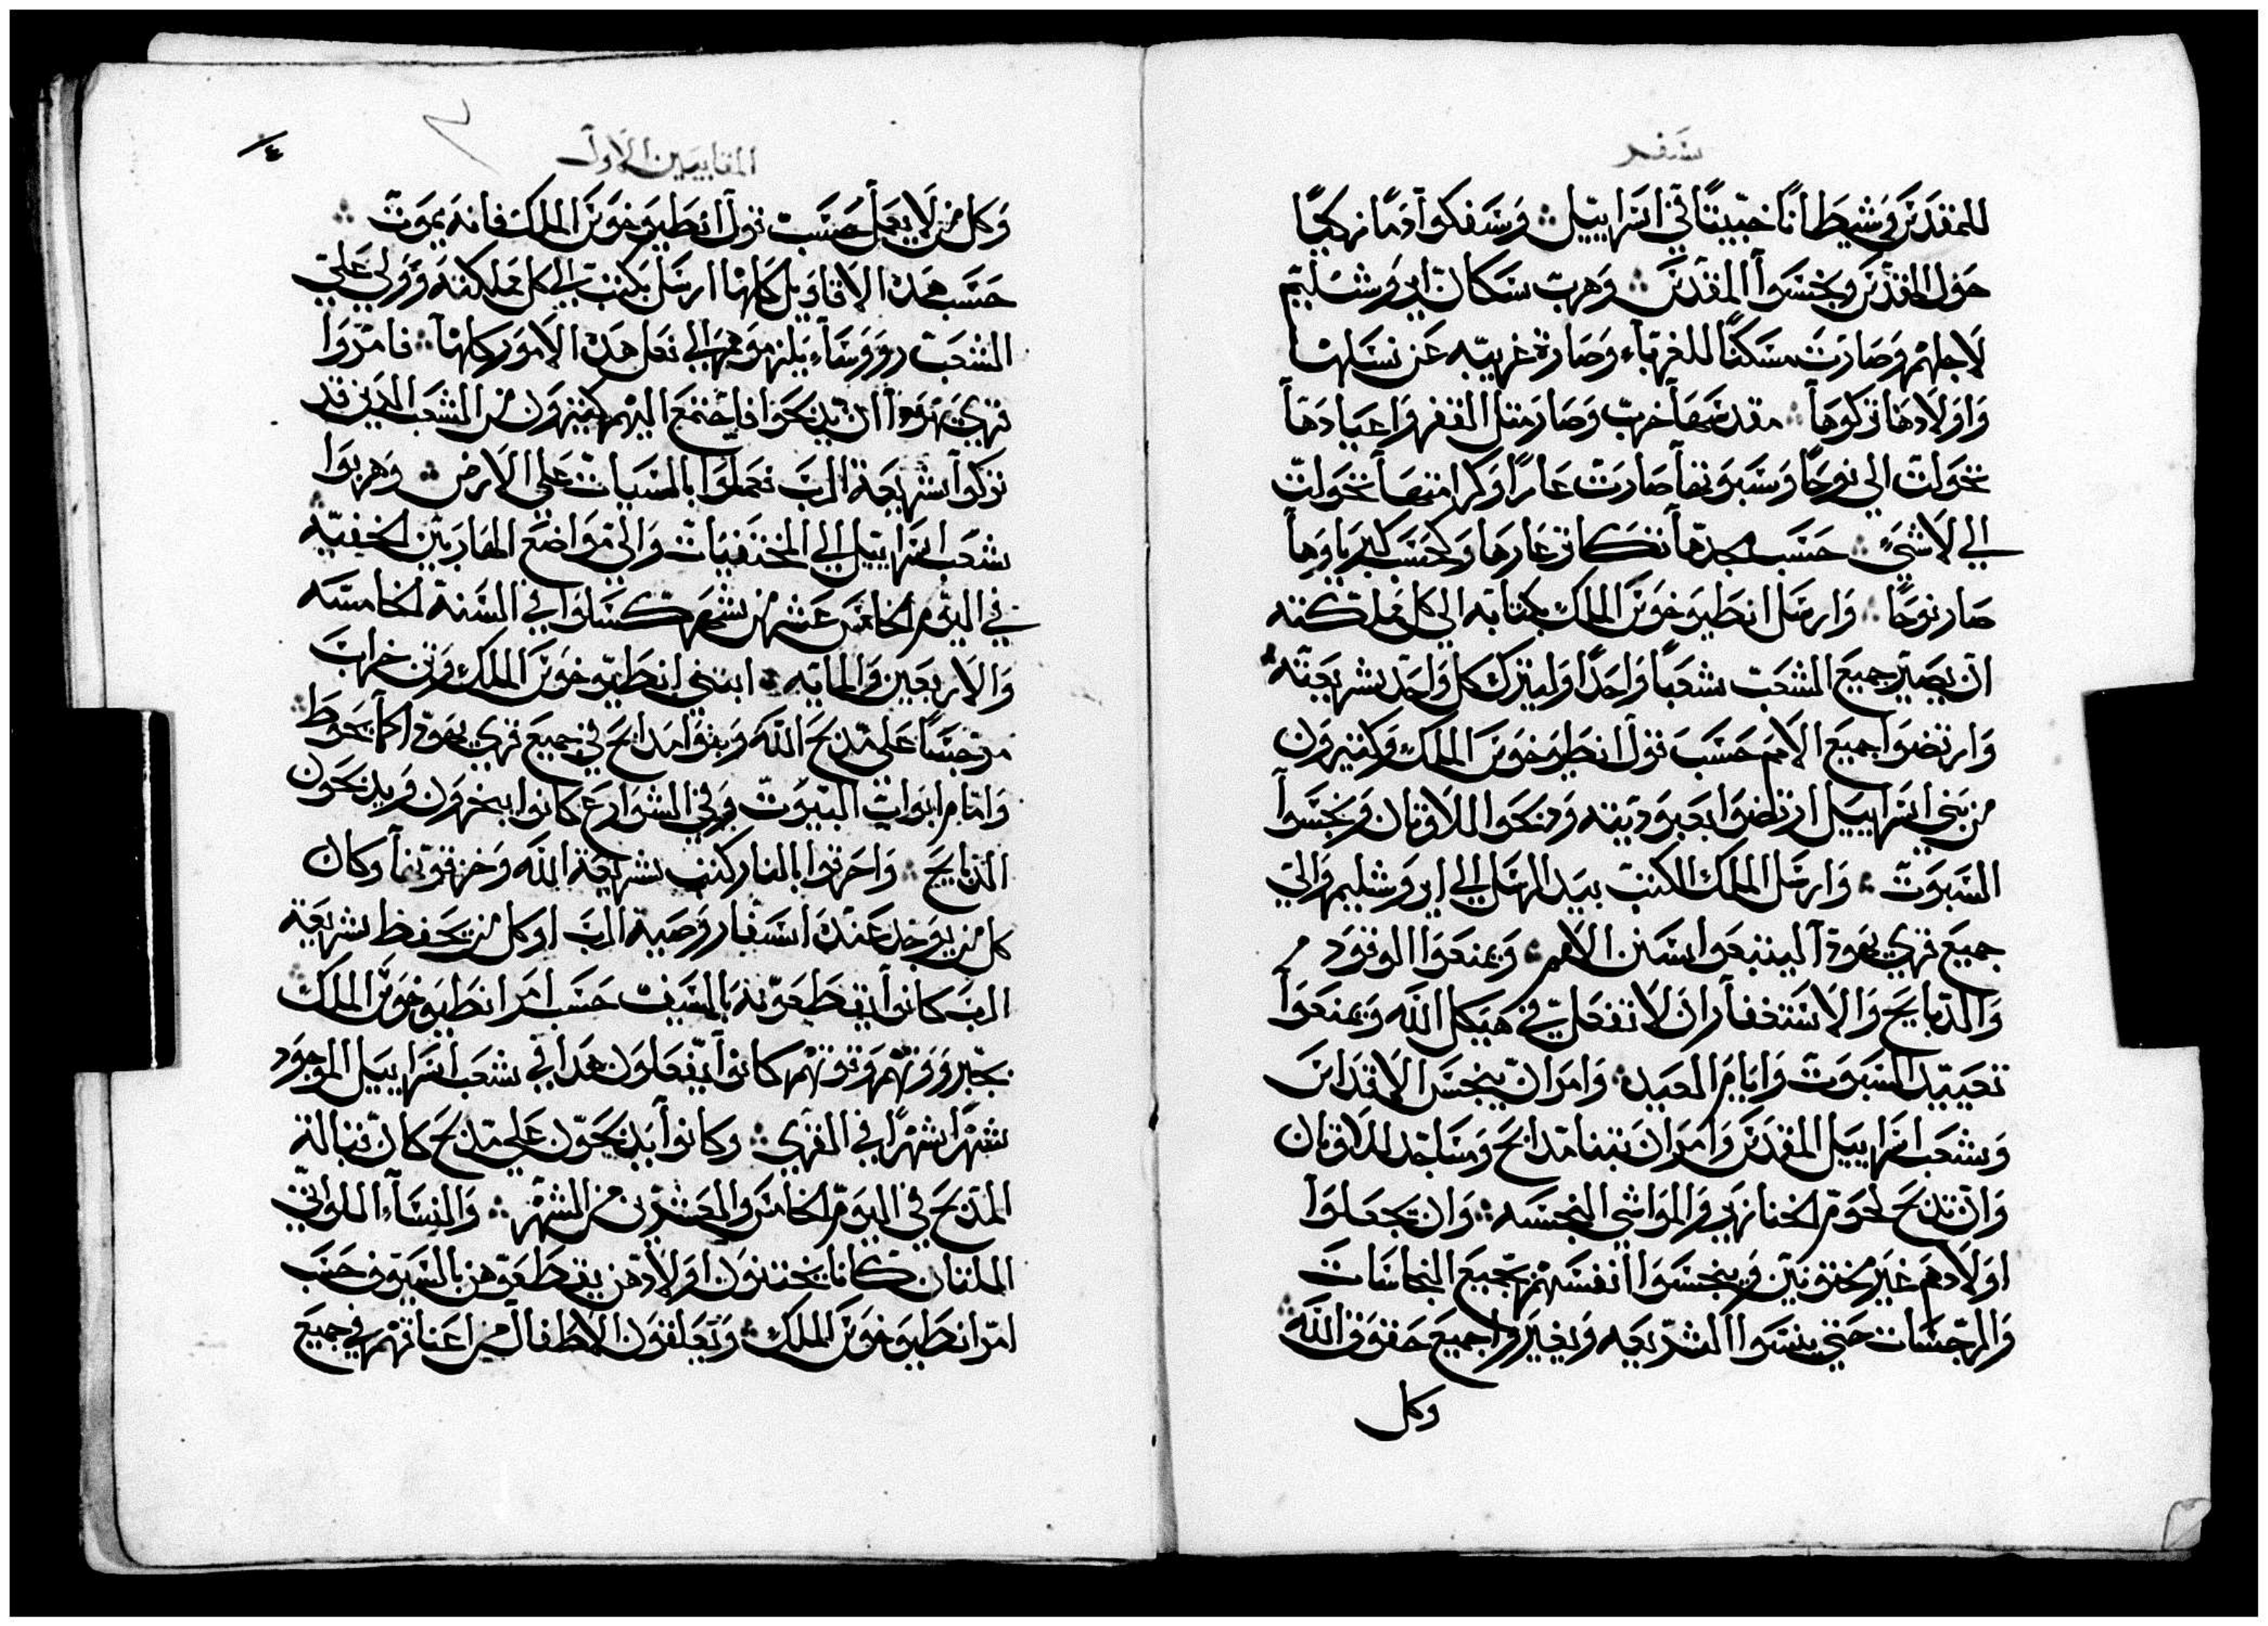 سفر
للمقدس وشيطانًا خبيثًا في اسراييل ∴ وسفكوا دمًا زكيًا
حول المقدس ونجسوا المقدس ∴ وهرب سكان ايروشليم
لاجلهم وصارت مسكنًا للغرباء وصارة غريبه عن نسلها
واولادها تركوها ∴ مقدسها خرب وصار مثل القفر واعيادها
تحولت الي نوحًا وسبوتها صارت عارًا وكرامتها تحولت
الي لاشيءٍ ∴ حسب مجدها تكاثر عارها وكحسب كبرياوها
صار نوحًا ∴ وارسل انطيوخوس الملك بكتابه الي كل مملكته
ان يصير جميع الشعب شعبًا واحدًا وليترك كل واحد شريعته ∴
وارتضوا جميع الامم حسب قول انطيوخوس الملك وكثيرون
من بني اسراييل ارتضوا بعبوديته ودبحوا للاوثان ونجسوا
السبوت ∴ وارسل الملك الكتب بيد الرسل الي ايروشليم والي
جميع قري يهودا ليتبعوا سنن الامم ∴ ويمنعوا الوقود
والدبايح والاستغفار ان لا تفعل في هيكل الله ويمنعوا
تعييد السبوت وايام العيد ∴ وامر ان ينجس الاقداس
وشعب اسراييل المقدس وامر ان تبنا مدابح ومساجد للاوثان
وان تدبح لحوم الخنازير والمواشي النجسه ∴ وان يجعلوا
اولادهم غير مختونين وينجسوا انفسهم بجميع النجاسات
والرجسات حتي ينسوا الشريعه ويغيروا جميع حقوق الله
وكل
المقابيين الاول
٤
وكل من لا يعمل حسب قول انطيوخوس الملك فانه يموت ∴
حسب هده الاقاويل كلها ارسل بكتب الي كل مملكته وولي علي
الشعب رووساء يلزموهم الي فعل هده الامور كلها ∴ فامروا
قري يهودا ان يدبحوا فاجتمع اليهم كثيرون من الشعب الدين قد
تركوا شريعة الرب فعملوا بالسيات علي الارض ∴ وهربوا
شعب اسراييل الي المختفيات والي مواضع الهاربين الخفيه
في اليوم الخامس عشر من شهر كسلوا في السنة الخامسه
والاربعين والمايه ∴ ابتني انطيوخوس الملك وثن خراب
مرجسًا علي مدبح الله وبنوا مدابح في جميع قري يهودا كما يحوط ∴
وامام ابواب البيوت وفي الشوارع كانوا يبخرون ويدبحون
الدبايح ∴ واحرقوا بالنار كتب شريعة الله وخزقوها وكان
كل من يوجد عنده اسفار وصية الرب او كل من يحفظ شريعة
الرب كانوا يقطعونه بالسيف حسب امر انطيوخوس الملك ∴
بجبرووتهم وقوتهم كانوا يفعلون هدا في شعب اسراييل الموجود
شهرًا شهرًا في القري ∴ وكانوا يدبحون علي مدبح كان قبالة
المدبح في اليوم الخامس والعشرين من الشهر ∴ والنساء اللواتي
كانا يختنون اولادهن يقطعوهن بالسيوف حسب
امر انطيوخوس الملك ∴ ويعلقون الاطفال من اعناقهم في جميع